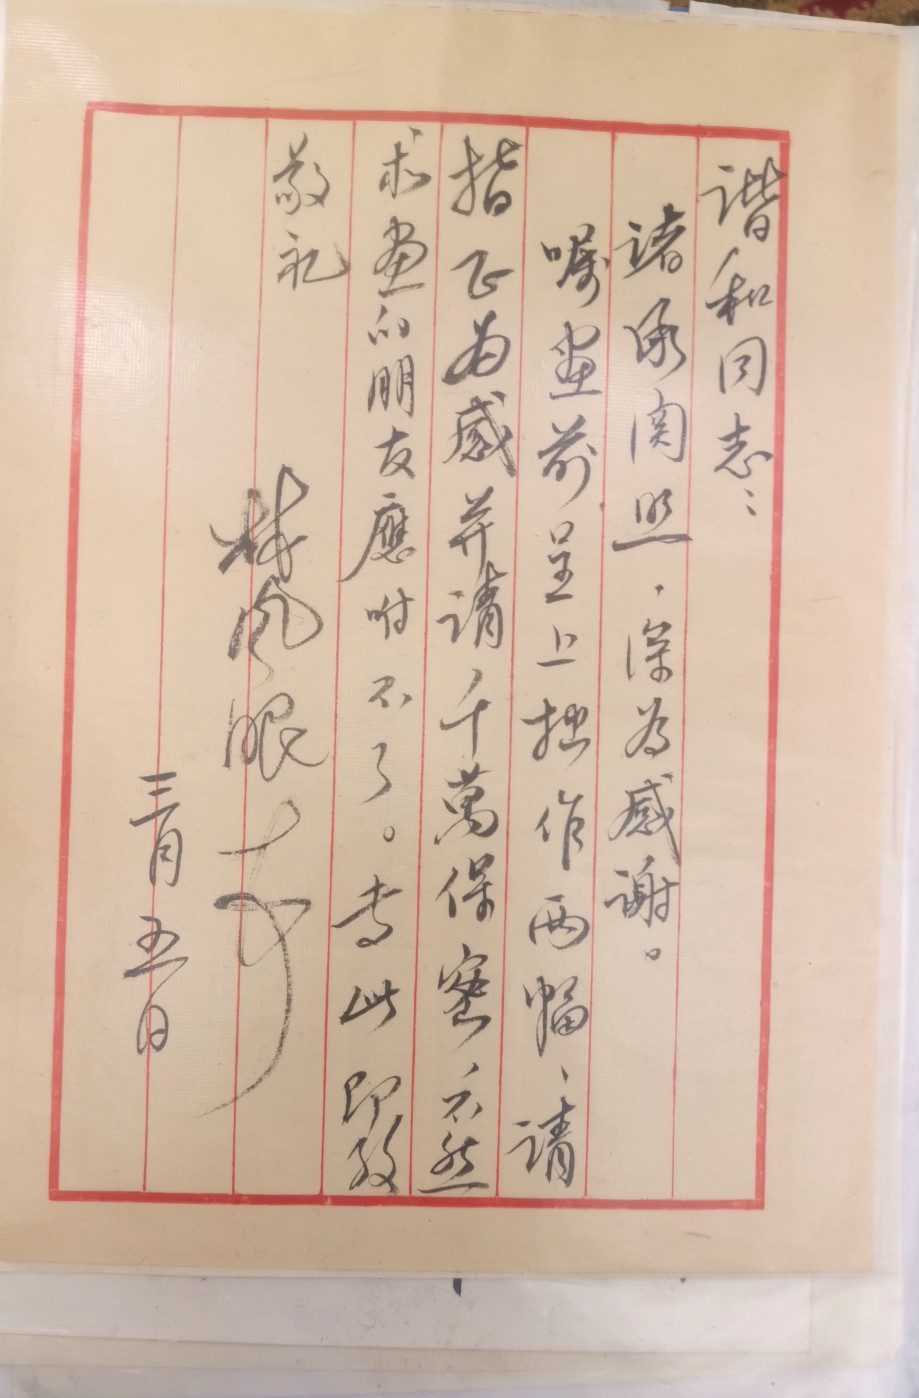 谐和同志：
诸承関照，深为感谢。
嘱画前呈上拙作两幅，请
指正为感并请，千萬保密，不然
求画的朋友應咐不了。专此即致
敬礼
林风眠
三月五日